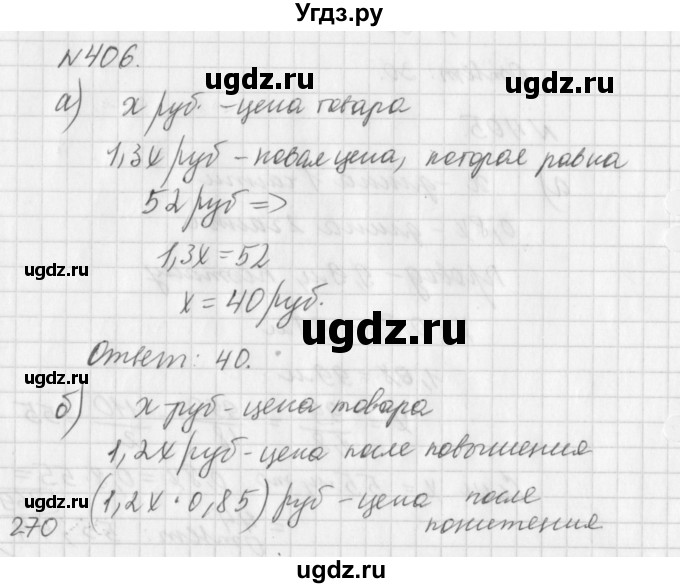 Угдз.ру
№406.
ugdz.ru ugdz.ru
а) x руб. – цена товара
1,3x руб – новая цена, которая равна
52 руб =>
ugdz.ru
1,3x = 52
ugdz.ru
x = 40 руб.
ugdz.ru
Ответ: 40.
ugdz.ru
б) x руб – цена товара
1,2x руб – цена после повышения
ugdz.ru
(1,2x · 0,85) руб – цена после
270 ugdz.ru понижения
ugdz.ru